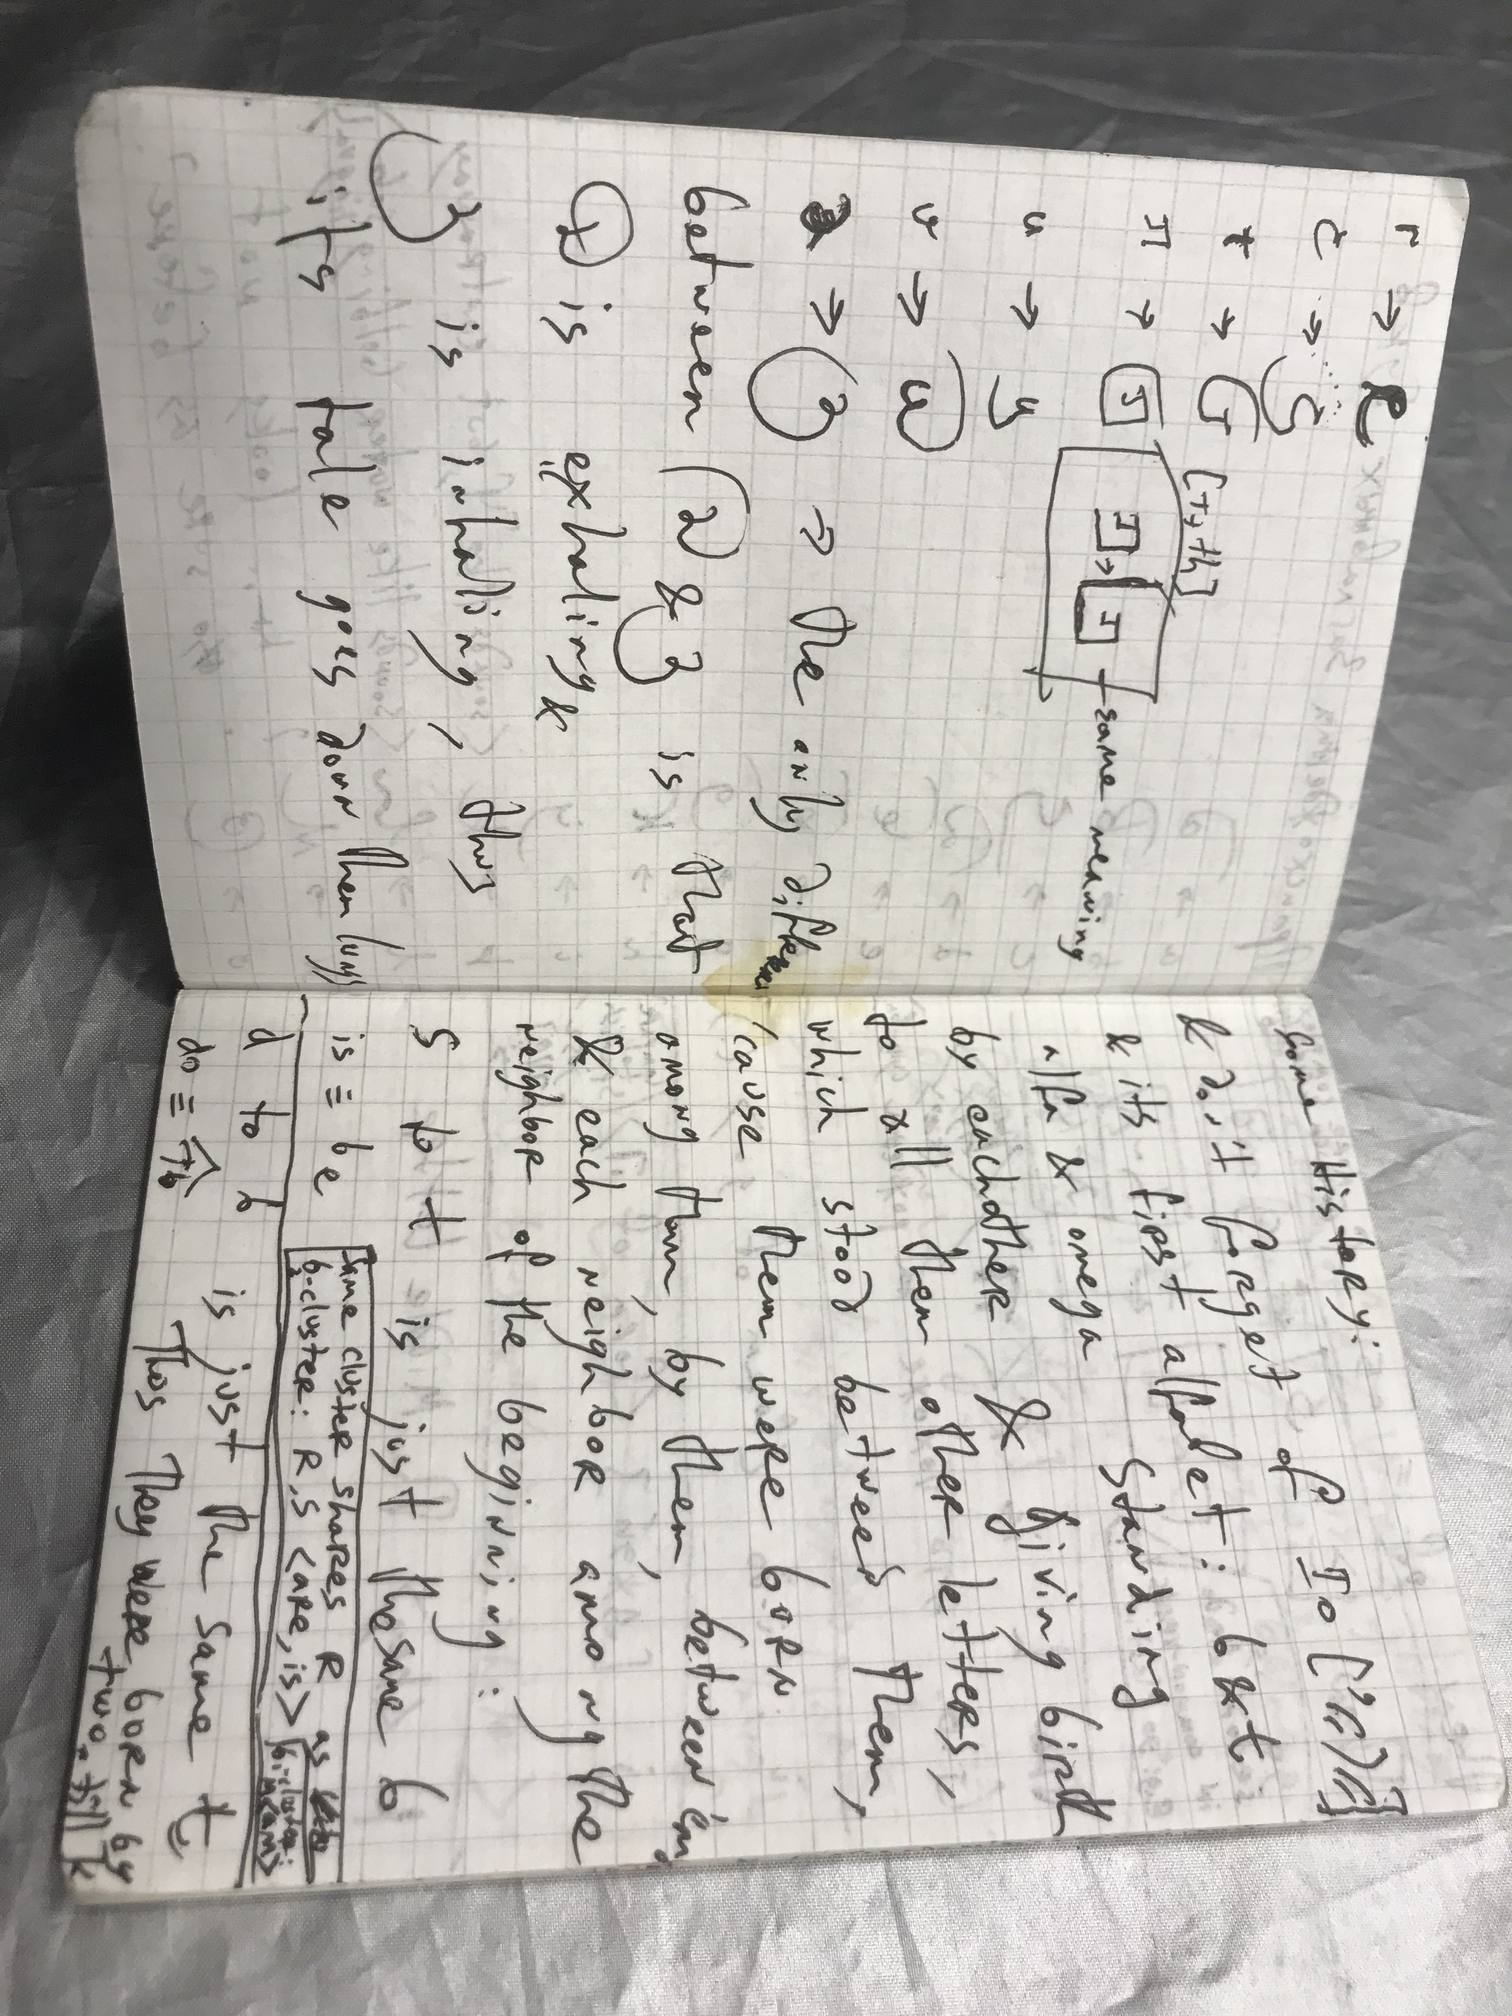 r → R
c → S
t → G [Ty, th]
π → J
u → y same meaning
v → w
→ 3 → the only differ
between 2 & 3 is that
2 is exhaling &
3 is inhaling, thus
its tale goes down them lungs
Some HistoRy: of Io
& don't forget
& its fiRst alfabet: b & t
alfa & omega standing
by eachotheR & giving birth
to all them otheR letteRs,
which stood between them,
'cause them weRe boRn
among them, by them, between 'em,
& each neighboR among the
neighboR of the beginning:
S to t is just the same b
is ≡ be
Same clusteR shaRes R as
b-clusteR: R, S <aRe, is>
d to b is just the same t
do ≡
Thos They weRe boRn by
two: